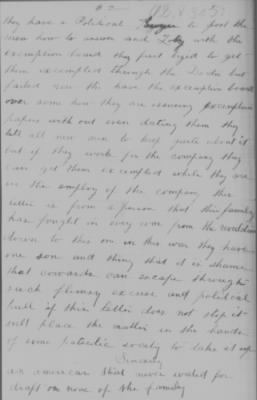 they have a Political Lawyer to post the
men how to answer and with the
exemption board they first tryed to get
them exempted through the but
failed now the have the exemption board
over some how they are issueing exemption
papers with out even dating them they
tell all new men to keep quite about it
but if they work for the company they
can get them exempted while they are
in the employ of the company this
letter is from a person that this family
has fought in every war from the revolution
down to this one in this war they have
one son and thing that it is shame
that cowards can escape through
such flimsy excuse and political
pull if this letter does not stop it
will place the matter in the hands
of some patriotic society to take it up
Sincerly
an american that never waited for
draft on none of the family